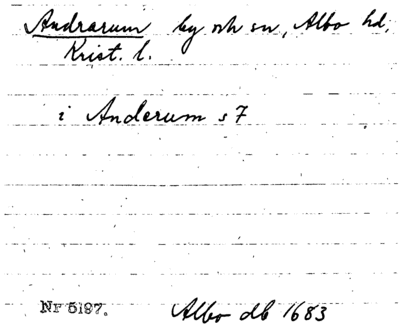 Andrarum by och sn, Albo hd,
Krist. l.
i Anderum s 7
Nr 5197.
Albo db 1683